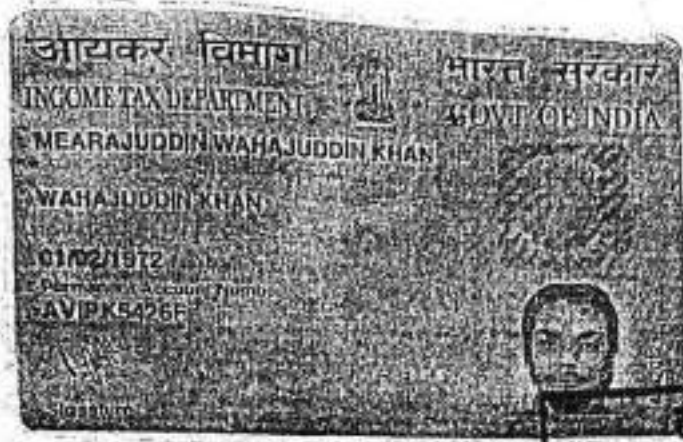 आयकर विभाग
भारत सरकार
INCOME TAX DEPARTMENT
GOVT. OF INDIA
MEARAJUDDIN WAHAJUDDIN KHAN
WAHAJUDDIN KHAN
01/02/1972
Permanent Account Number
Signature